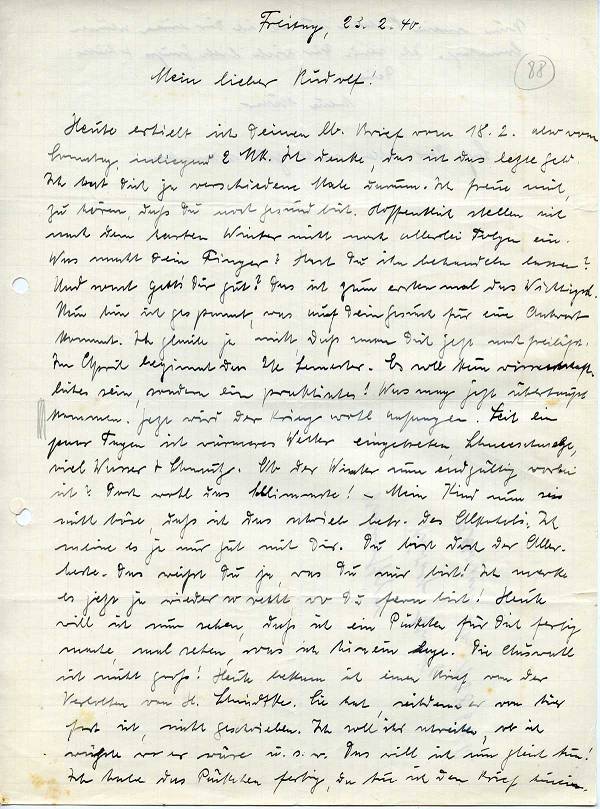 Freitag, 23. 2. 40.
88
Mein lieber Rudolf!
Heute erhielt ich Deinen lb. Brief vom 18. 2. also vom
Sonntag, inliegend 2 MK. Ich denke, das ist das letzte Geld.
Ich bat Dich ja verschiedene Male darum. Ich freue mich,
zu hören, daß Du noch gesund bist. Hoffentlich stellen sich
nach dem harten Winter nicht noch allerlei Folgen ein.
Was macht Dein Finger? Hast Du ihn behandeln lassen?
Und sonst geht's Dir gut? Das ist zum ersten mal das Wichtigste.
Nun bin ich gespannt, was auf Dein Gesuch für eine Antwort
kommt. Ich glaube ja nicht daß man Dich jetzt noch freiläßt.
Im April beginnt das Semester. Es soll kein wissenschaft-
liches sein, sondern ein praktisches! Was mag jetzt überhaupt
kommen. Jetzt wird der Krieg wohl anfangen. Seit ein
paar Tagen ist wärmeres Wetter eingetreten, Schneeschmelze,
viel Wasser + Schmutz. Ob der Winter nun endgültig vorbei
ist? Doch wohl das Schlimmste! – Mein Kind nun sei
nicht böse, daß ich das schrieb betr. des Alkohols. Ich
meine es ja nur gut mit Dir. Du bist doch der Aller-
beste. Das weißt Du ja, was Du mir bist! Ich merke
es jetzt ja wieder so recht wo Du fern bist! Heute
will ich nun sehen, daß ich ein Päckchen für Dich fertig
mache, mal sehen, was ich hinein lege. Die Auswahl
ist nicht groß! Heute bekam ich einen Brief von der
Verlobten von H. Sie hat, seitdem er von hier
fort ist, nicht geschrieben. Ich soll ihr schreiben, ob ich
wüßte wo er wäre u. s. w. Das will ich nun gleich tun!
Ich habe das Päckchen fertig, da tue ich den Brief hinein.